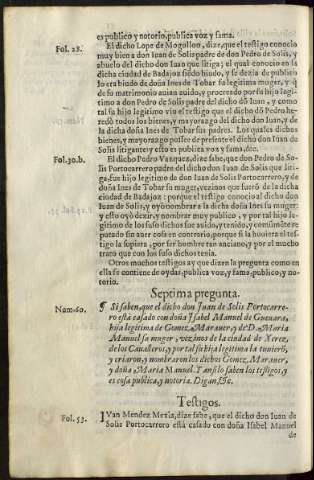 es publico y notorio, publica voz y fama.
Fol. 28.
El dicho Lope de Mogollon, dize, que el testigo conocio
muy bien a don Iuan de Solis padre de don Pedro de Solis, y
abuelo del dicho don Iuan que litiga; el qual conocio en la
dicha ciudad de Badajoz siẽdo biudo, y se dezia de publico
lo era biudo de doña Ines de Tobar su legitima muger, y q̃
de su matrimonio auian auido, y procreado por su hijo legi-
timo a don Pedro de Solis padre del dicho dõ Iuan, y como
tal su hijo legitimo vio el testigo que el dicho dõ Pedro he-
redò todos los bienes, y mayorazgo del dicho don Iuan, y de
la dicha doña Ines de Tobar sus padres. Los quales dichos
bienes, y mayorazgo possee de presente el dicho dõ Iuan de
Solis litigante y esto es publica voz y fama, &c.
Fol. 30. b.
El dicho Pedro Vazquez, dize sabe, que don Pedro de So-
lis Portocarrero padre del dicho don Iuan de Solis que liti-
ga, fue hijo legitimo de don Iuan de Solis Portocarrero, y de
doña Ines de Tobar su muger, vezinos que fuerõ de la dicha
ciudad de Badajoz: porque el testigo conocio al dicho don
Iuan de Solis, y oyò nombrar a la dicha doña Ines su muger:
y ello oyò dezir, y nombrar muy publico, y por tal hijo le-
gitimo de los suso dichos fue auido, y tenido, y comũmẽte re-
putado sin auer cosa en contrario, porque si la huuiera el tes-
tigo la supiera, por ser hombre tan anciano, y por el mucho
trato que con los suso dichos tenia.
Otros muchos testigos ay que dizen la pregunta como en
ella se contiene de oydas publica voz, y fama, publico, y no-
torio.
Septima pregunta.
Num. 60.
¶ Si saben, que el dicho don Iuan de Solis Portocarre-
ro està casado con doña Isabel Manuel de Gueuara,
hija legitima de Gomez Marauer, y de D. Maria
Manuel su muger, vezinos de la ciudad de Xerez,
de los Caualleros, y por tal su hija legitima la tuuierõ,
y criaron, y nombraron los dichos Gomez Marauer,
y doña Maria Manuel. Y ansi lo saben los testigos, y
es cosa publica, y notoria. Digan, &c.
Testigos.
Fol. 53.
IVan Mendez Mexia, dize sabe, que el dicho don Iuan de
Solis Portocarrero està casado con doña Isabel Manuel
de